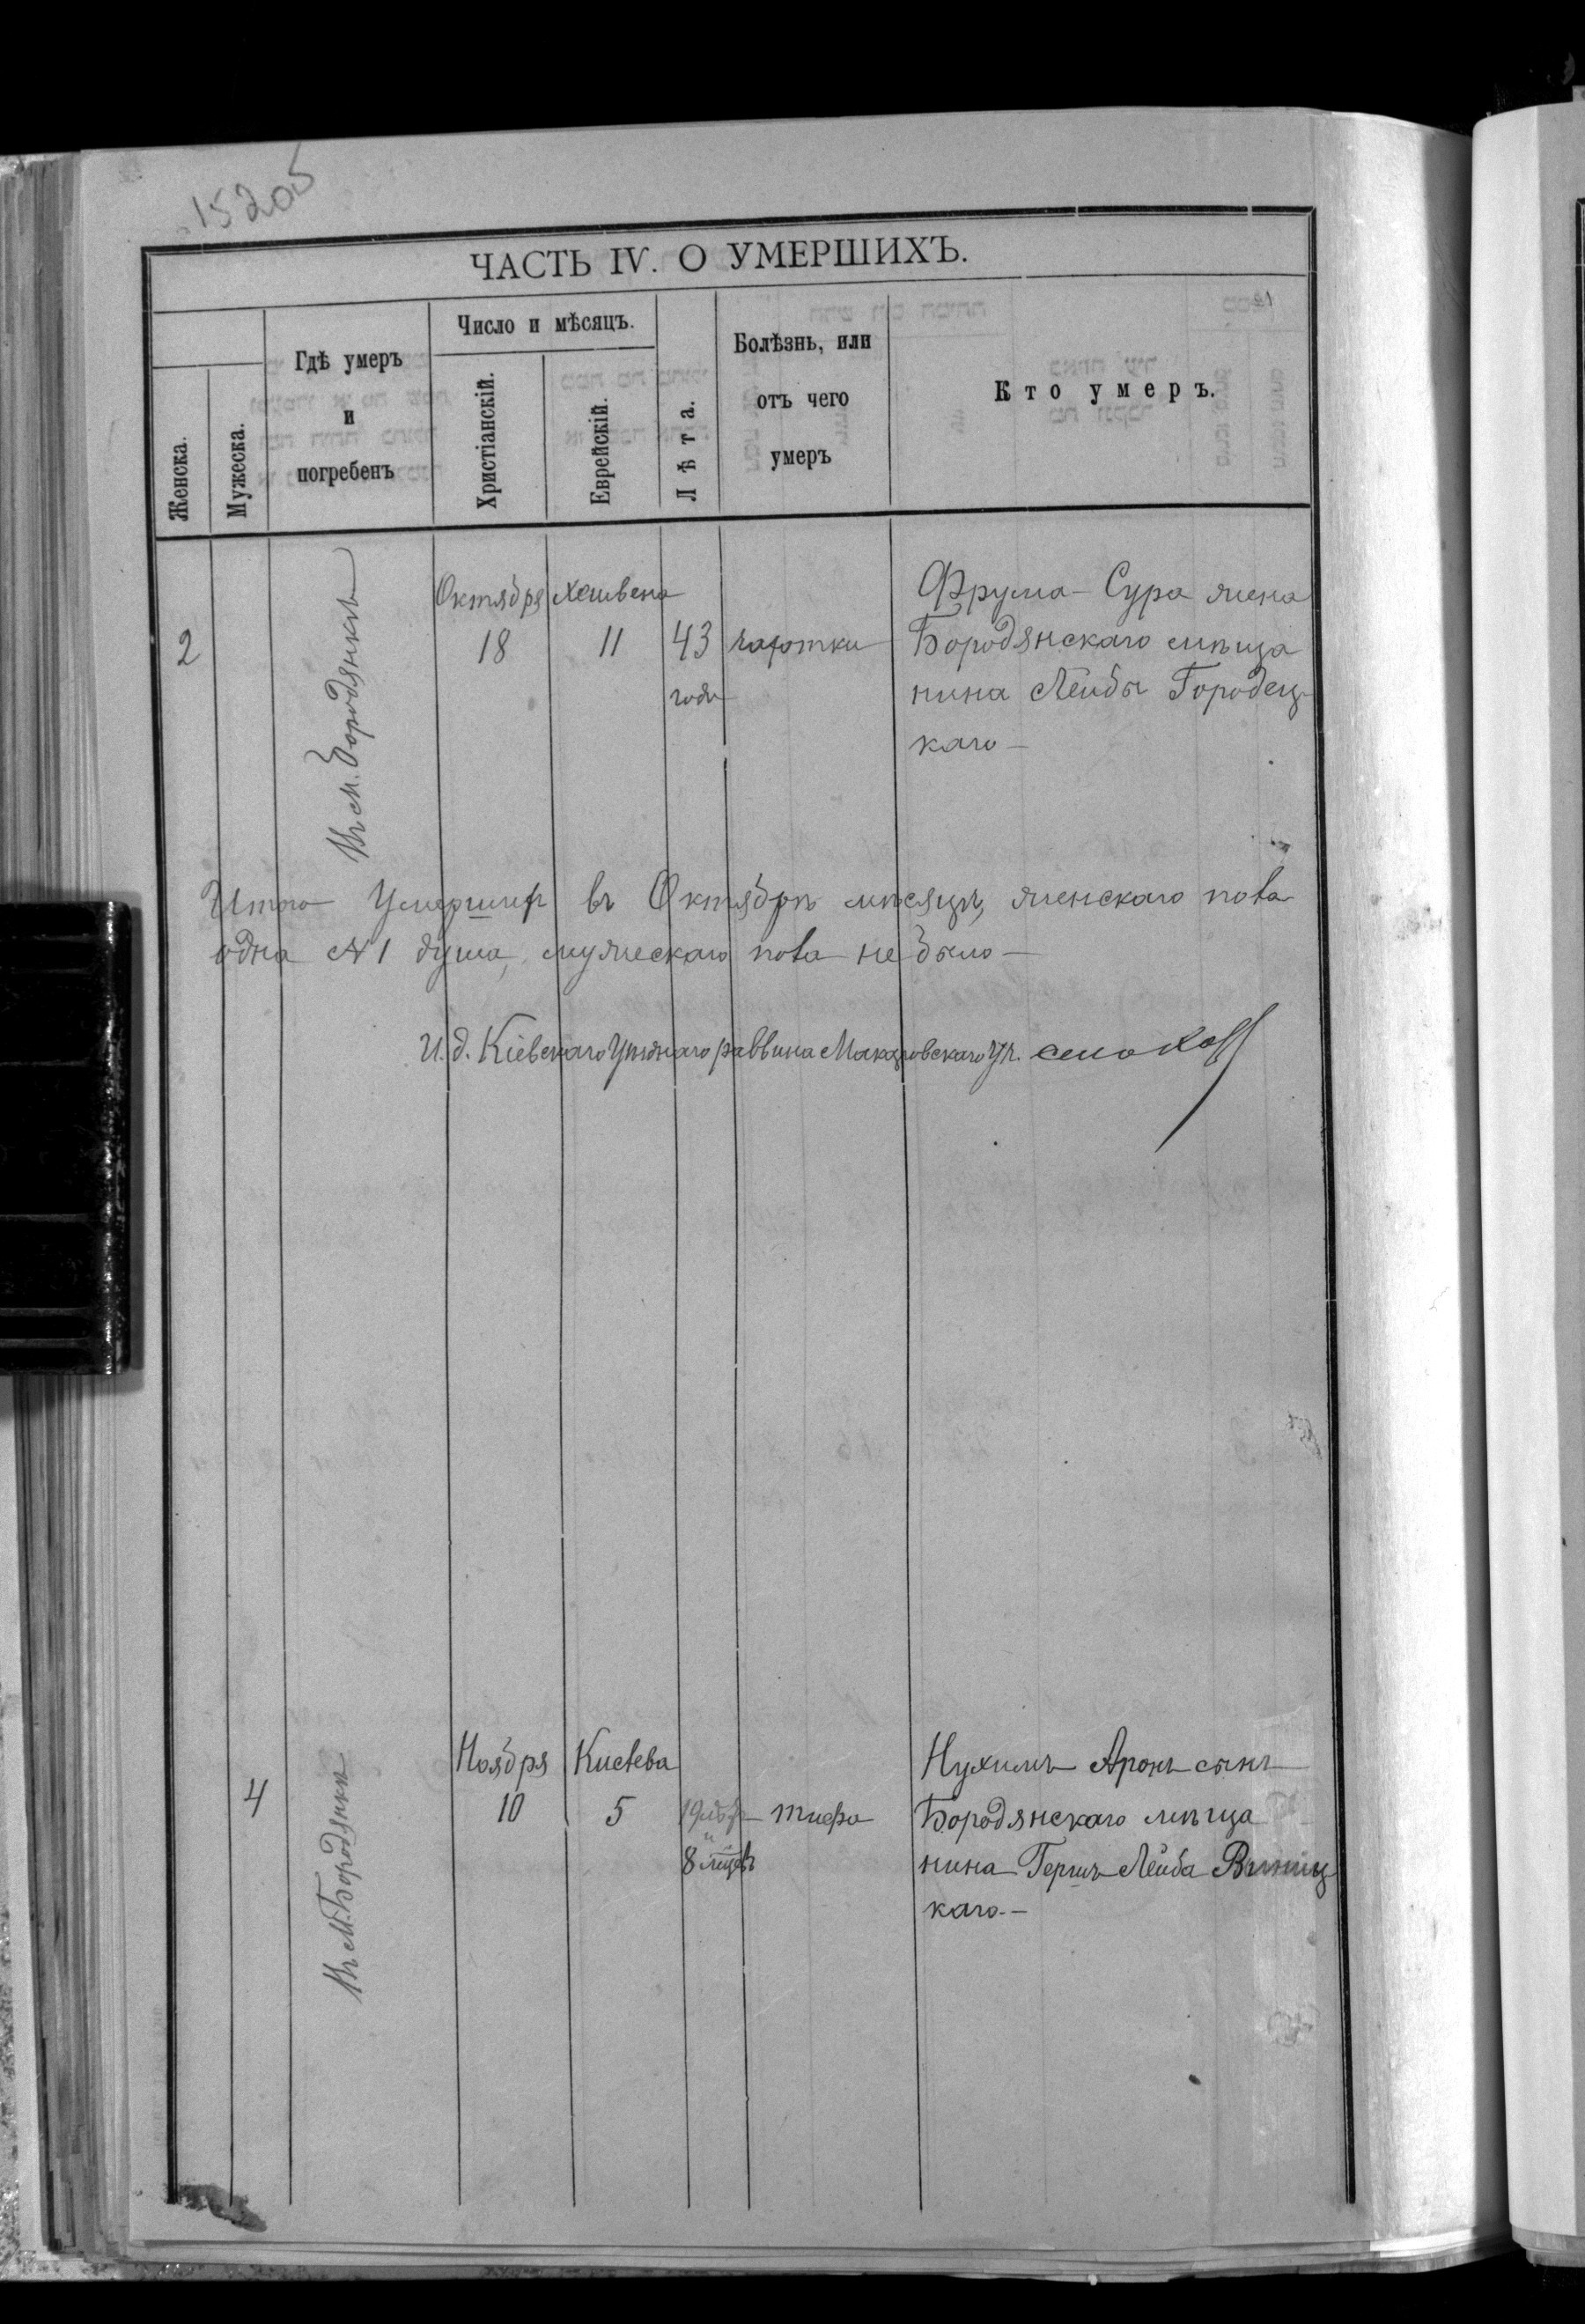 15205
ЧАСТЬ IV. О УМЕРШИХЪ.
Женска.
Мужеска.
Гдѣ умеръ
и
погребенъ
Число и мѣсяцъ.
Христіанскій.
Еврейскій.
Лѣта.
Болѣзнь, или
отъ чего
умеръ
Кто умеръ.
2
Въ м. Бородянкѣ
Октября
18
Хешвена
11
43
года
чахотки
Фрума-Сура жена
Бородянскаго мѣща
нина Лейбы Городец
каго-
Итого Умершихъ въ Октябрѣ мѣсяцѣ, женскаго пола
одна № 1 душа, мужескаго пола не было-
И. д. Кіевскаго Уѣзднаго раввина Макаровскаго Уч.
4
Въ м. Бородянкѣ
Ноября
10
Кислева
5
и
8 мцевъ
тифа
Нухимъ Аронъ сынъ
Бородянскаго мѣща
нина Гершъ Лейба Виниц
каго.-